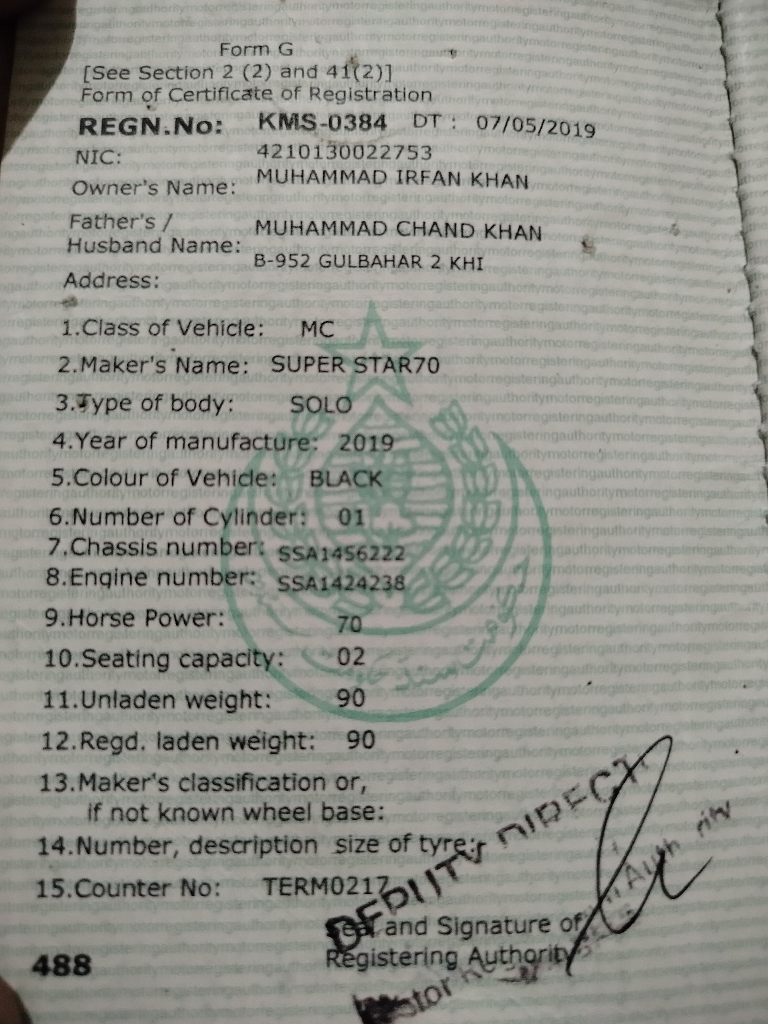 Form G
[See Section 2 (2) and 41(2)]
Form of Certificate of Registration
REGN.No: KMS-0384 DT : 07/05/2019
NIC: 4210130022753
Owner's Name: MUHAMMAD IRFAN KHAN
Father's /
Husband Name: MUHAMMAD CHAND KHAN
B-952 GULBAHAR 2 KHI
Address:
1.Class of Vehicle: MC
2.Maker's Name: SUPER STAR70
3.Type of body: SOLO
4.Year of manufacture: 2019
5.Colour of Vehicle: BLACK
6.Number of Cylinder: 01
7.Chassis number: SSA1456222
8.Engine number: SSA1424238
9.Horse Power: 70
10.Seating capacity: 02
11.Unladen weight: 90
12.Regd. laden weight: 90
13.Maker's classification or,
if not known wheel base:
14.Number, description size of tyre:
15.Counter No: TERM0217
DEPUTY DIRECT
Seal and Signature of
Registering Authority
488